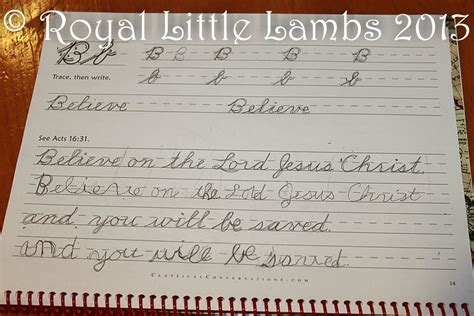 © Royal Little Lambs 2013
Bb B B B B B
Trace, then write. b b b b
Believe Believe
See Acts 16:31.
Believe on the Lord Jesus Christ,
Believe on the Lord Jesus Christ
and you will be saved.
and you will be saved.
ClassicalConversations.com
14